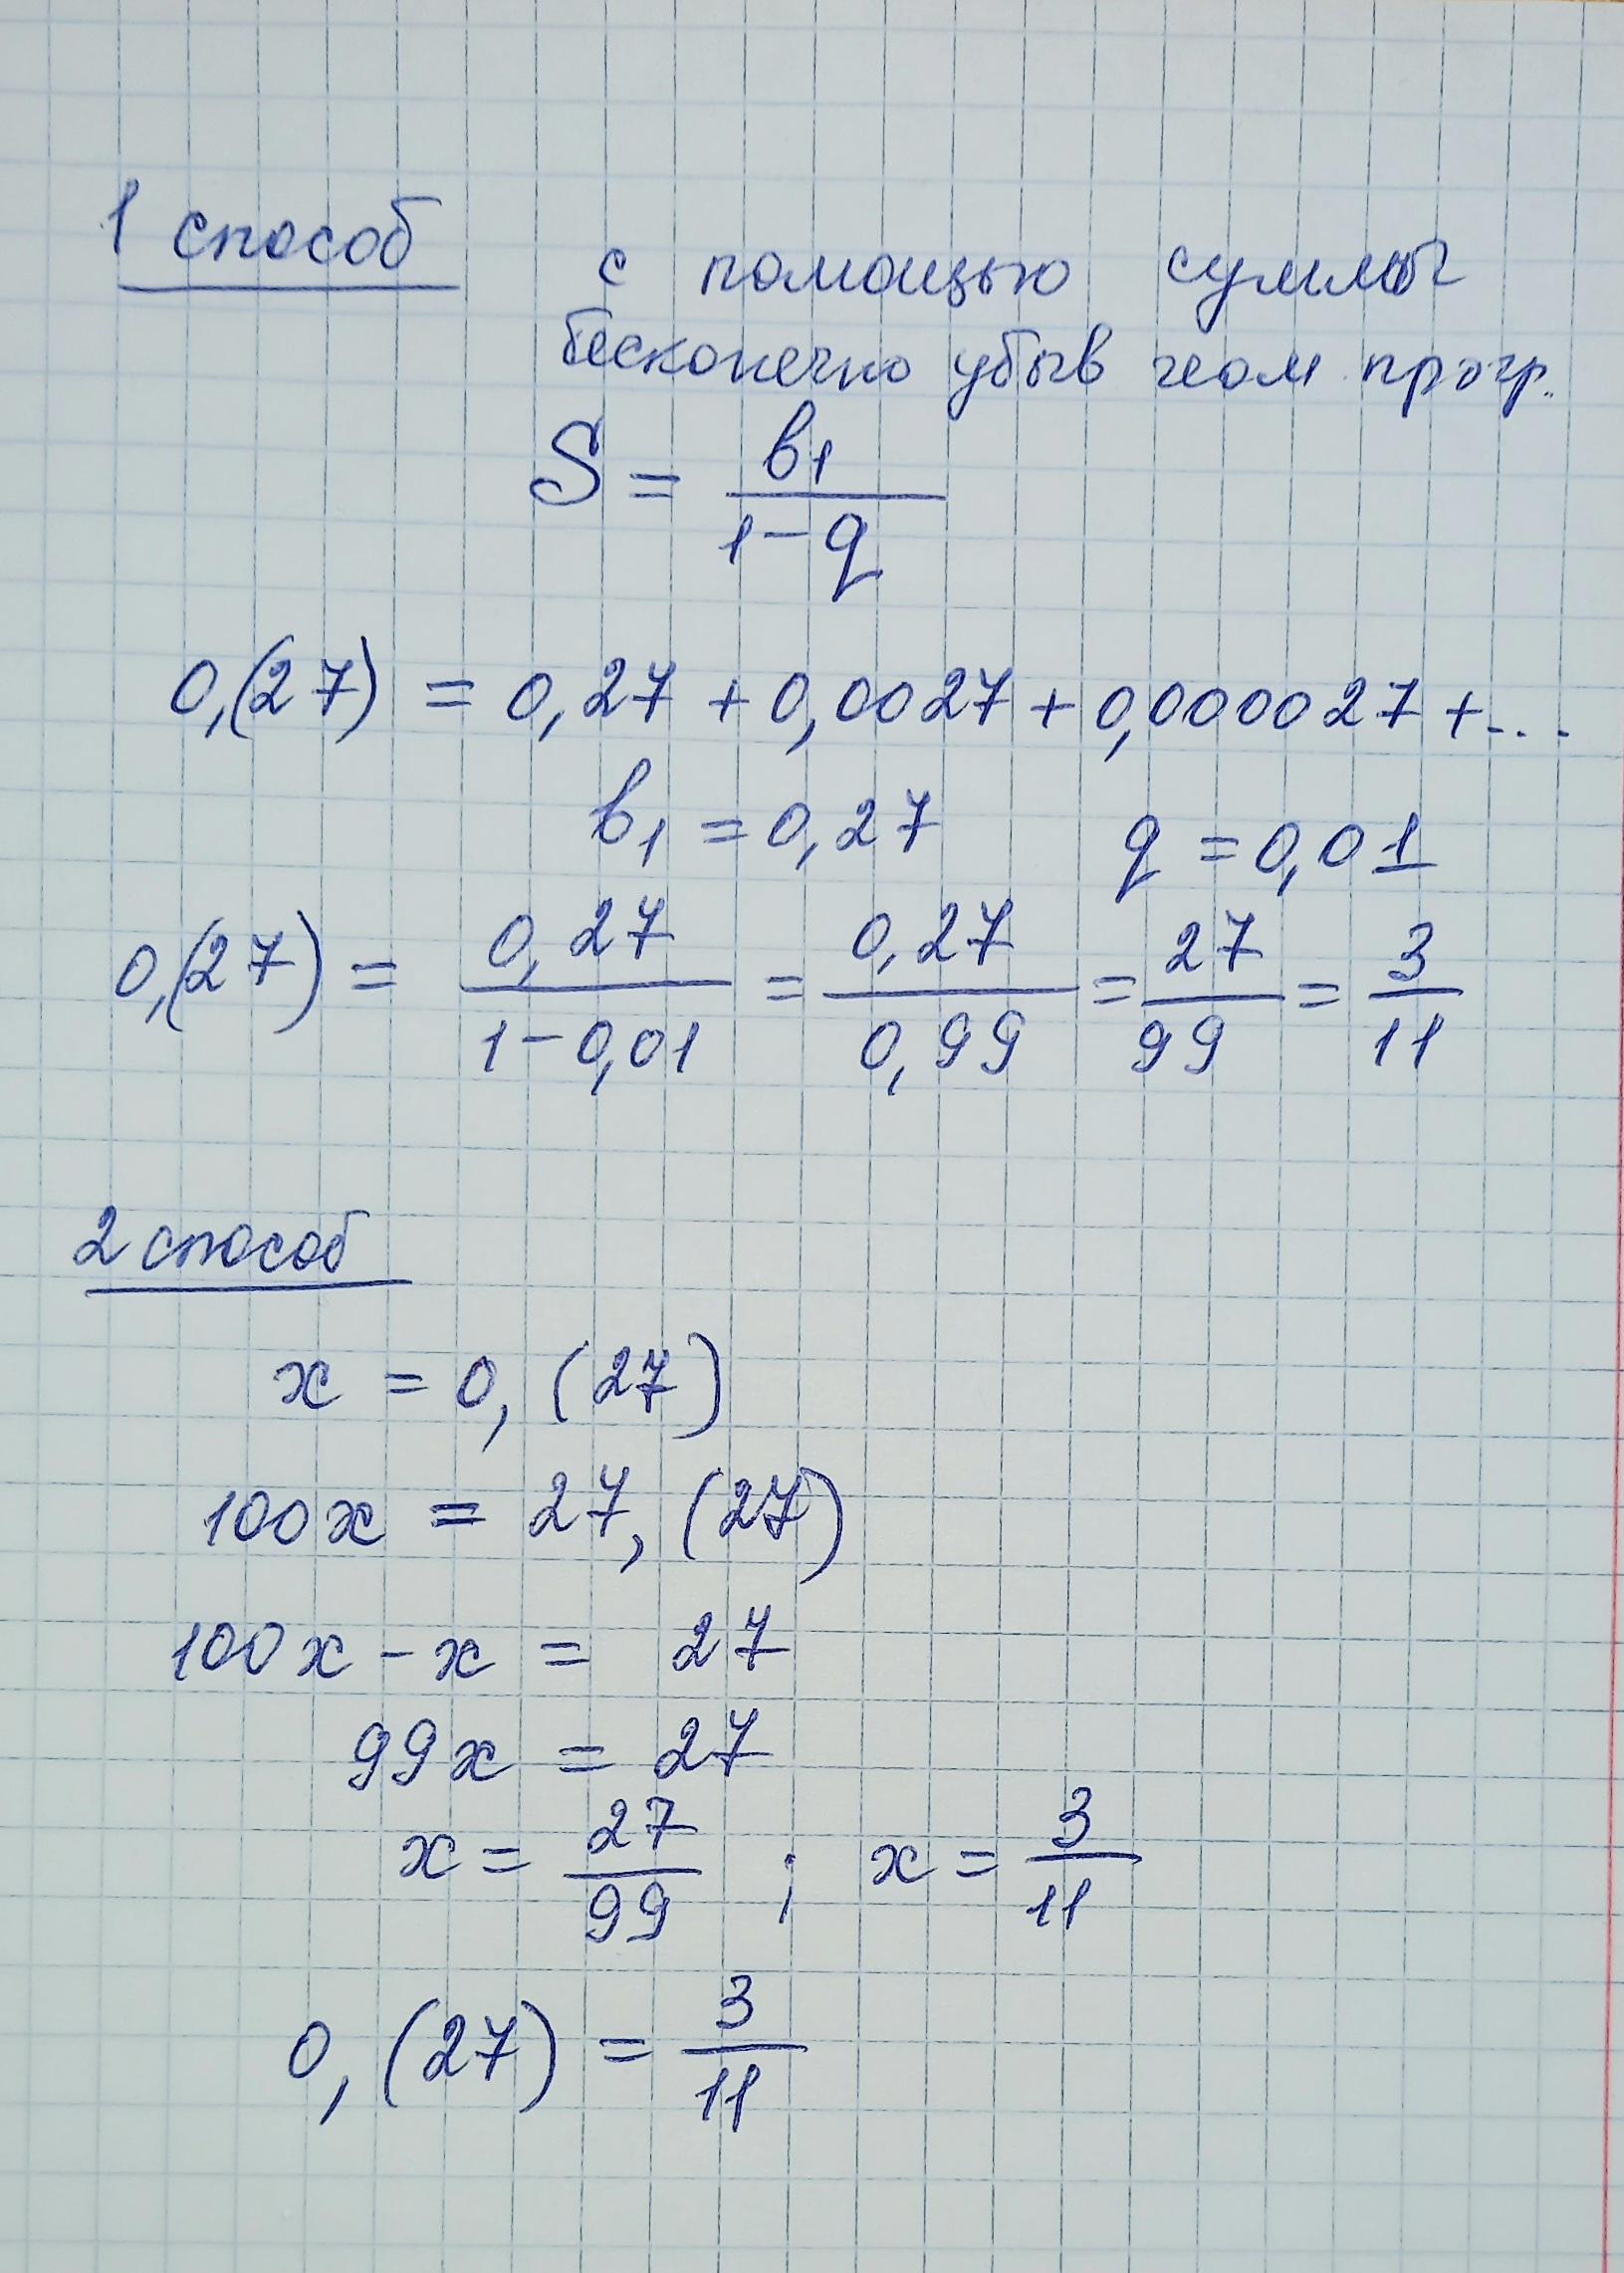 1 способ
с помощью суммы
бесконечно убыв геом прогр.
S = b₁/(1-q)
0,(27) = 0,27 + 0,0027 + 0,000027 + ...
b₁ = 0,27 q = 0,01
0,(27) = 0,27/(1-0,01) = 0,27/0,99 = 27/99 = 3/11
2 способ
x = 0,(27)
100x = 27,(27)
100x - x = 27
99x = 27
x = 27/99 ; x = 3/11
0,(27) = 3/11